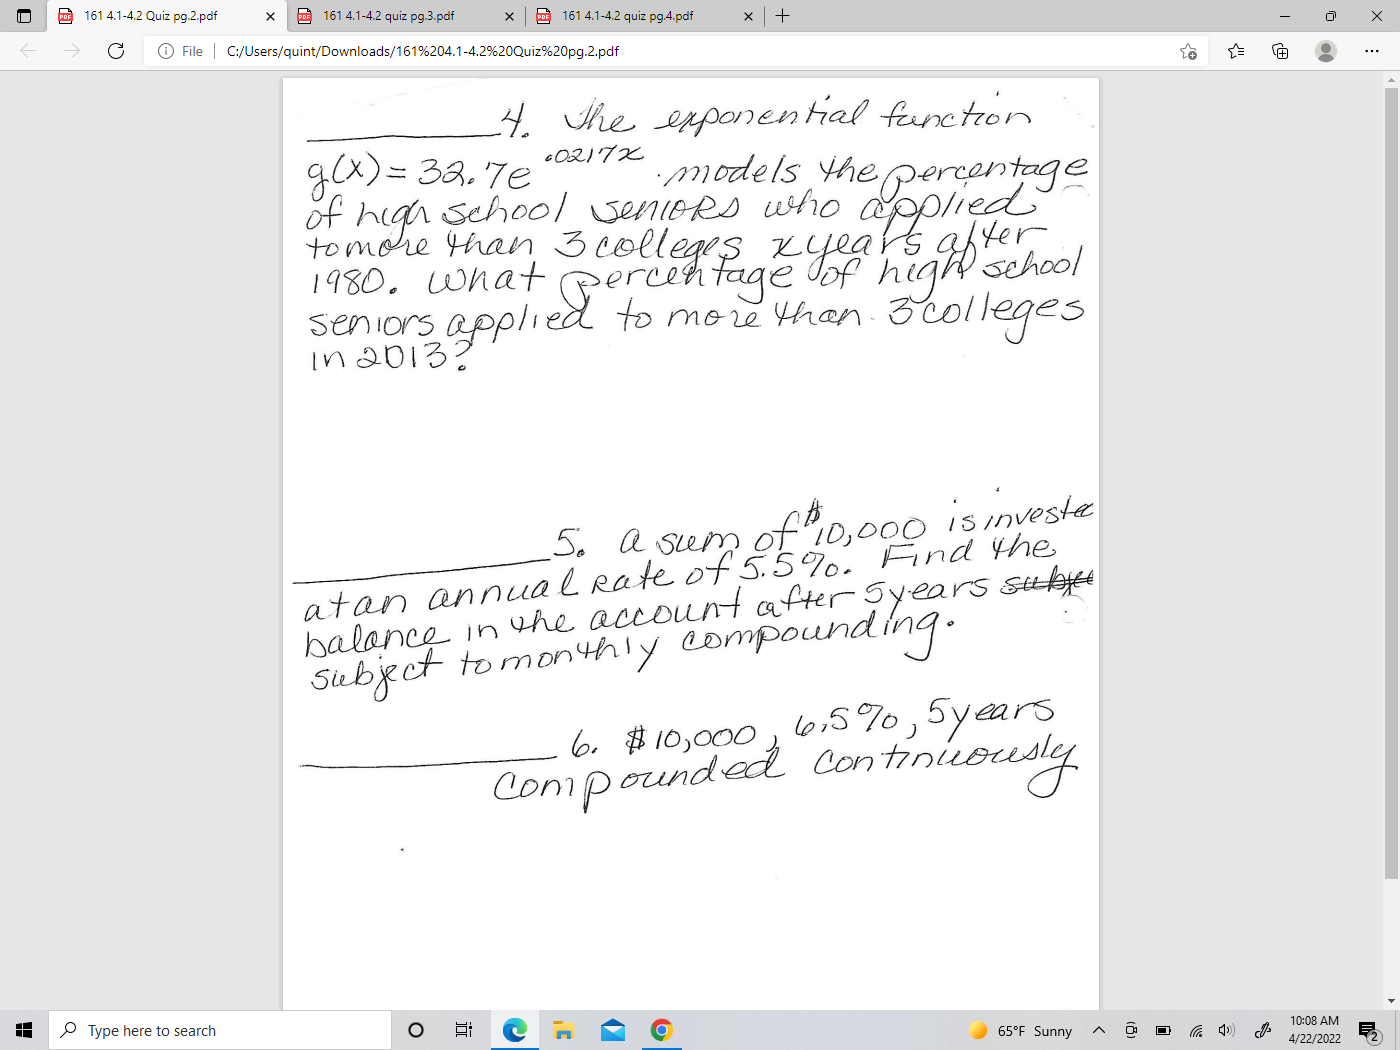 161 4.1-4.2 Quiz pg.2.pdf
161 4.1-4.2 quiz pg.3.pdf
161 4.1-4.2 quiz pg.4.pdf
File
C:/Users/quint/Downloads/161%204.1-4.2%20Quiz%20pg.2.pdf
4. The exponential function
g(x) = 32.7e^.0217x models the percentage
of high school seniors who applied
to more than 3 colleges x years after
1980. What percentage of high school
seniors applied to more than 3 colleges
in 2013?
5. A sum of $10,000 is investe
at an annual rate of 5.5%. Find the
balance in the account after 5 years
subject to monthly compounding.
6. $10,000, 6.5%, 5 years
compounded continuously
Type here to search
65°F Sunny
10:08 AM
4/22/2022
2